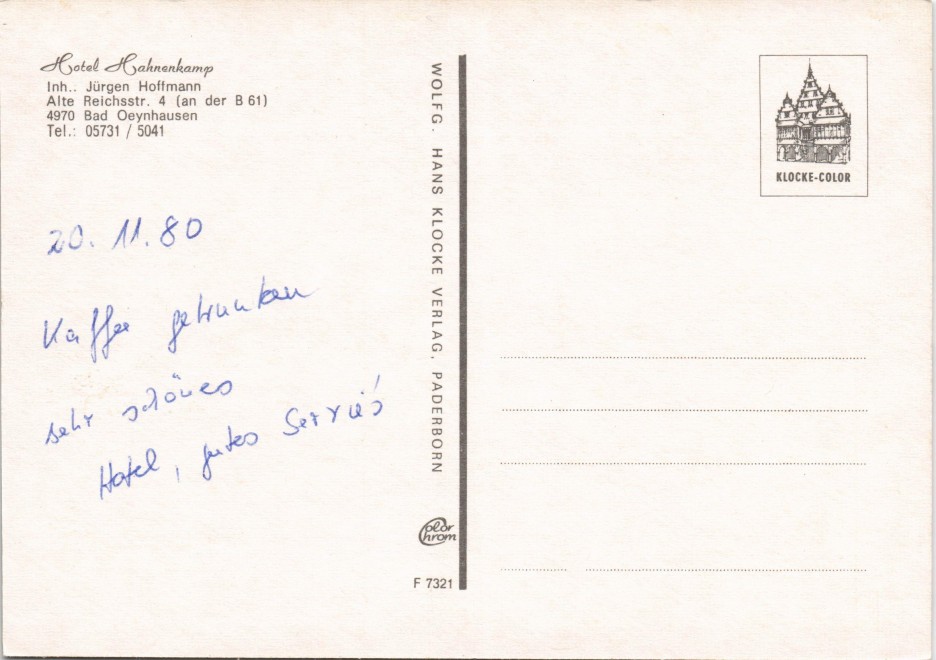 Hotel Hahnenkamp
Inh.. Jürgen Hoffmann
Alte Reichsstr. 4 (an der B 61)
4970 Bad Oeynhausen
Tel.: 05731 / 5041
20. 11. 80
Kaffee getrunken
sehr schönes
Hotel, gutes Servies
WOLFG. HANS KLOCKE VERLAG, PADERBORN
Color Chrom
F 7321
KLOCKE-COLOR